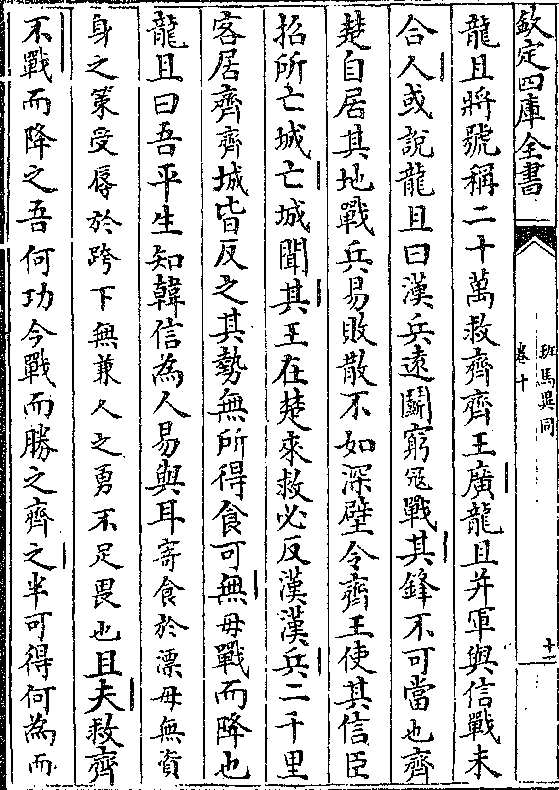 欽定四庫全書
班馬異同
卷十
十一
龍且將號稱二十萬救齊齊王廣龍且并軍與信戰未
合人或說龍且曰漢兵遠鬭窮冦戰其鋒不可當也齊
楚自居其地戰兵易敗散不如深壁令齊王使其信臣
招所亡城亡城聞其王在楚來救必反漢漢兵二千里
客居齊齊城皆反之其勢無所得食可無毋戰而降也
龍且曰吾平生知韓信為人易與耳寄食於漂母無資
身之策受辱於跨下無兼人之勇不足畏也且夫救齊
不戰而降之吾何功今戰而勝之齊之半可得何為而